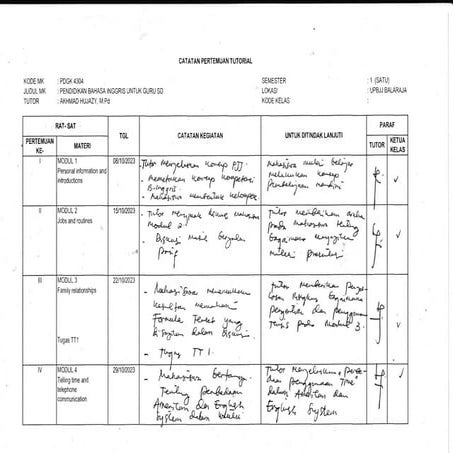 CATATAN PERTEMUAN TUTORIAL
KODE MK : PDGK 4304
SEMESTER : 1 (SATU)
JUDUL MK : PENDIDIKAN BAHASA INGGRIS UNTUK GURU SD
LOKASI : UPBJJ BALARAJA
TUTOR : AKHMAD HUJAZY, M.Pd
KODE KELAS :
RAT- SAT
TGL
CATATAN KEGIATAN
UNTUK DITINDAK LANJUTI
PARAF
PERTEMUAN KE-
MATERI
TUTOR
KETUA KELAS
I
MODUL 1
Personal information and
introductions
08/10/2023
- Tutor menjelaskan konsep
- Memetakan konsep kompetensi
B. Inggris
- Mahasiswa membentuk kelompok
Mahasiswa mulai belajar
melakukan konsep
Pembelajaran mandiri
II
MODUL 2
Jobs and routines
15/10/2023
- Tutor mahasiswa
Modul 2
- Diskusi berjalan
Tutor memberikan
pada mahasiswa tentang
bagaimana
materi
III
MODUL 3
Family relationships
Tugas TT1
22/10/2023
- Mahasiswa menemukan
kesulitan memahami
Formula Tenses yang
disajikan dalam
- Tugas TT 1.
Tutor memberikan
bagaimana
pengertian dan penggunaan
Tenses pada Modul 3.
IV
MODUL 4
Telling time and
telephone
communication
29/10/2023
- Mahasiswa bertanya
Tentang perbedaan
American dan English
System dalam
Tutor menjelaskan
dan penggunaan "Time"
dalam American dan
English System